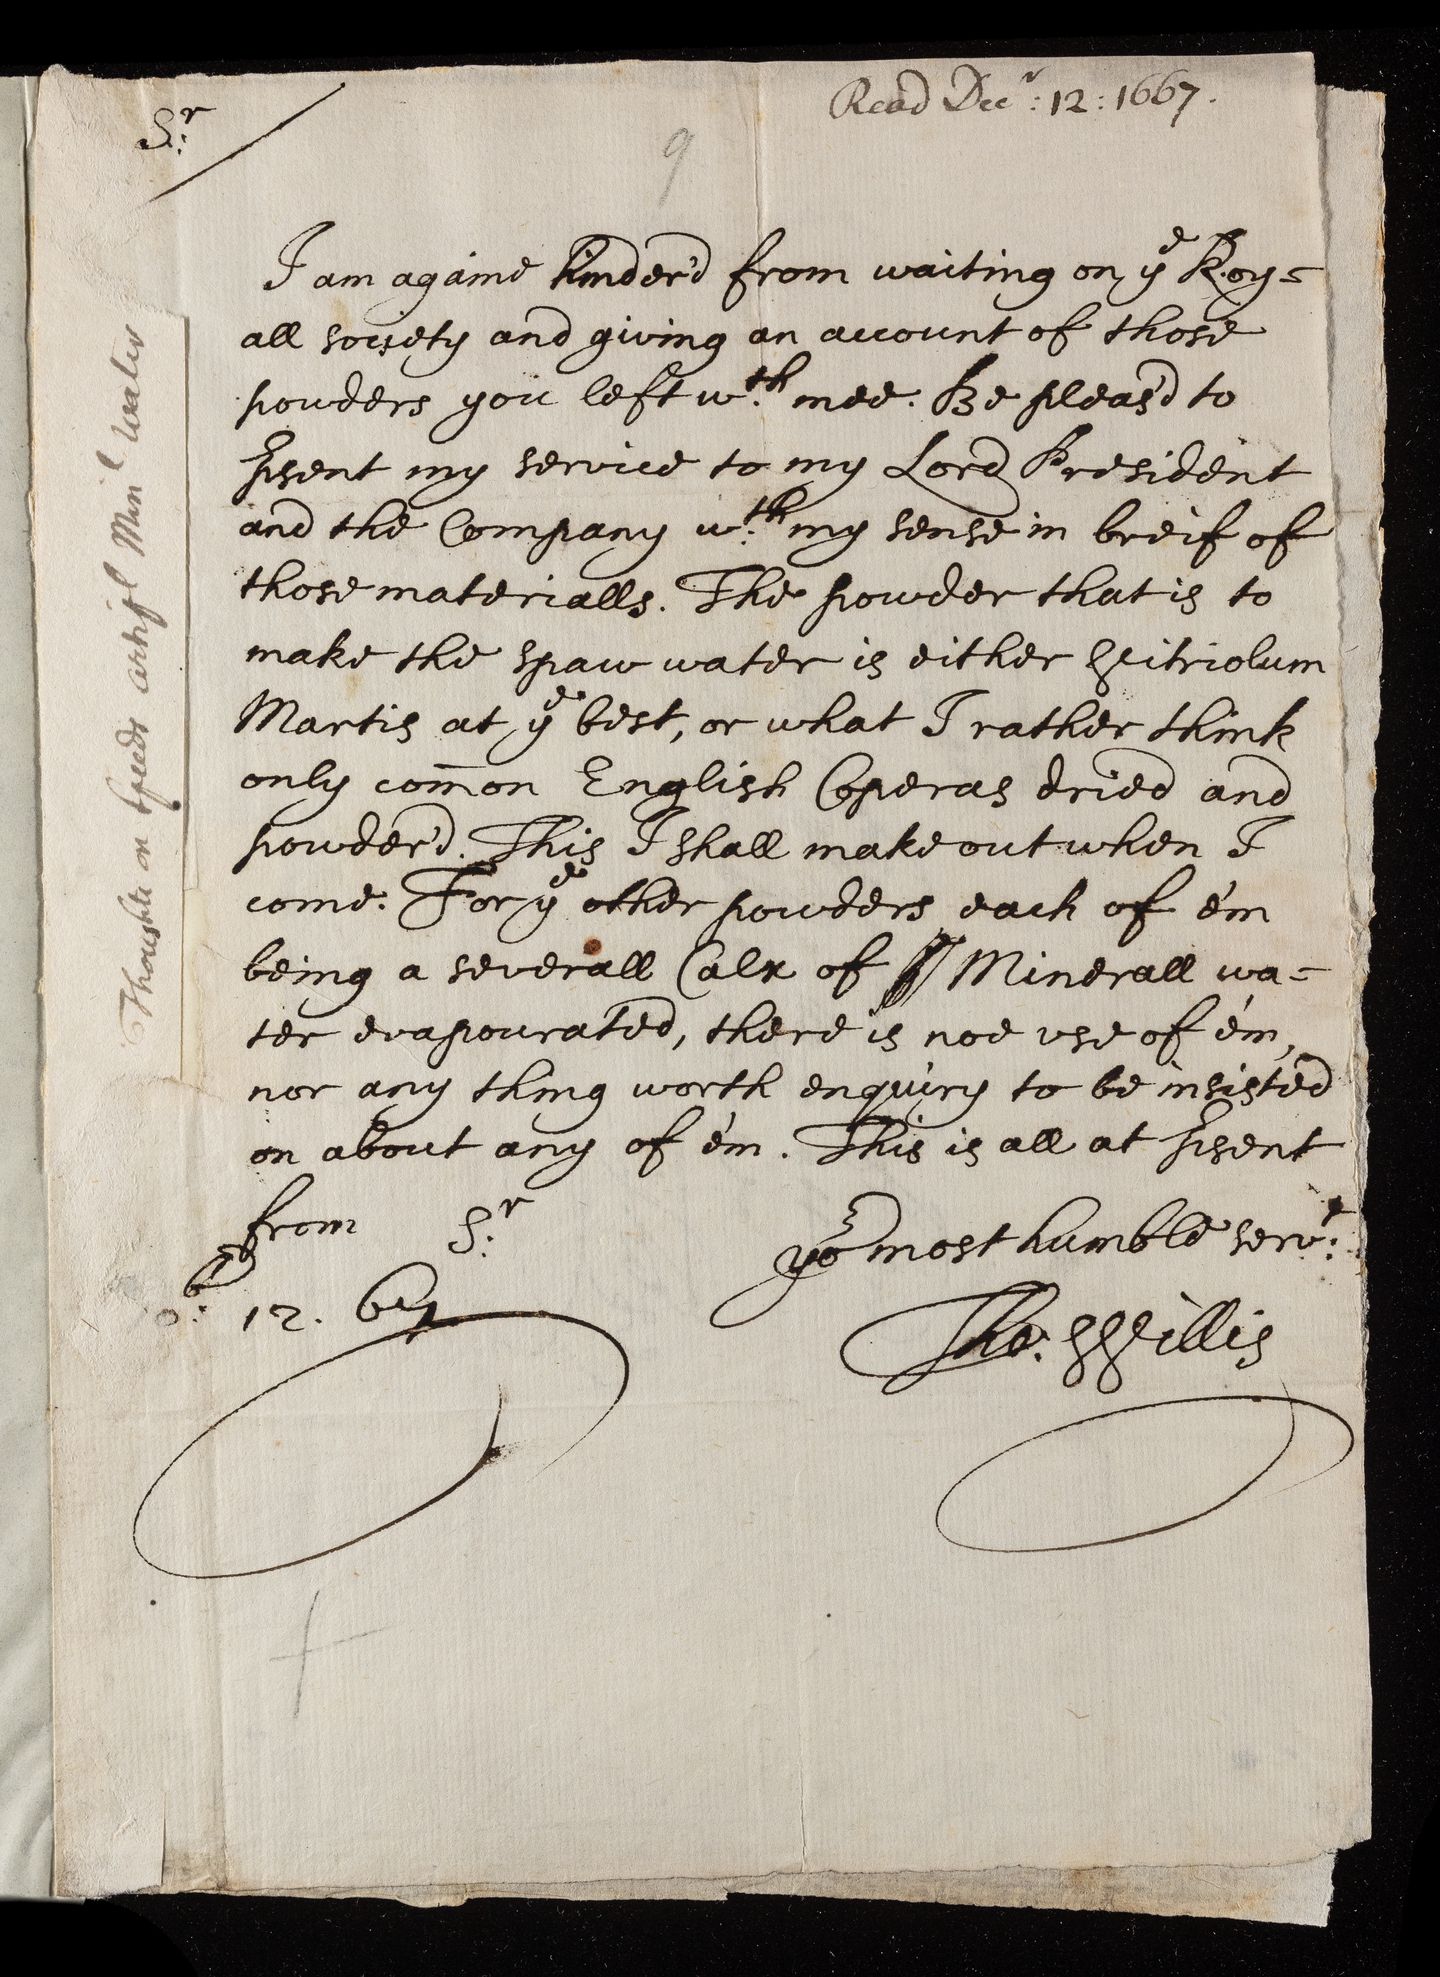 Read Decr: 12: 1667.
9
Sr:
I am againe hinder'd from waiting on ye Roy=
all society and giving an account of those
powders you left wth: mee. Be pleas'd to
p̄sent my service to my Lord President
and the Company wth: my sense in breif of
those materialls. The powder that is to
make the spaw water is either Vitriolum
Martis at ye best, or what I rather think
only com̄on English Coperas dried and
powder'd. This I shall make out when I
come. For ye other powders each of e'm
being a severall Calx of Minerall wa=
ter evapourated, there is noe vse of e'm,
nor any thing worth enquiry to be insisted
on about any of e'm. This is all at p̄sent
from Sr:
yor most humble servt:
12. 67
Tho: Willis
Thoughts on artifl Minl water